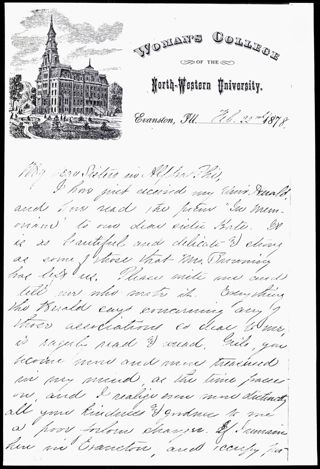 WOMAN'S COLLEGE
OF THE
North-Western University.
Evanston, Ill. Feb. 22nd 1878.
My dear Sisters in Alpha Phi,
I have just received my Univ. Herald
and have read the poem "In Mem-
oriam" to our dear sister Kate. It
is as beautiful and delicate I think
as some of those that Mrs. Browning
has left us. Please write me and
tell me who wrote it. Everything
the Herald says concerning any of
those associations so dear to me,
is eagerly read & reread. Girls, you
become more and more treasured
in my mind, as the time passes
on, and I realize even more distinctly
all your kindness & goodness to me
a poor forlorn stranger. If I remain
here in Evanston, and occupy